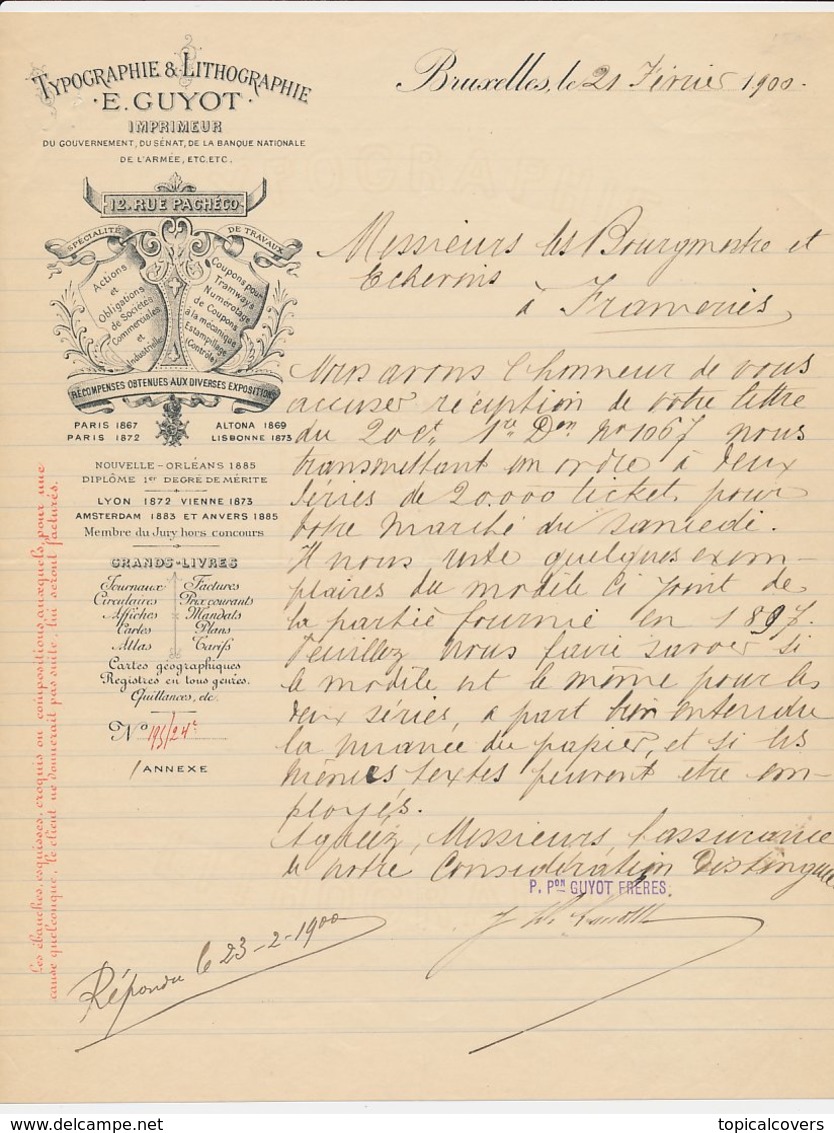 TYPOGRAPHIE & LITHOGRAPHIE
E. GUYOT
IMPRIMEUR
DU GOUVERNEMENT, DU SÉNAT, DE LA BANQUE NATIONALE
DE L'ARMÉE, ETC. ETC.
12. RUE PACHÉCO
SPÉCIALITÉ DE TRAVAUX
Actions
et
Obligations
de Sociétés
Commerciales
et
Industrielles
Coupons pour
Tramways
Numérotage
de Coupons
à la mécanique
Estampillage
(Contrôle)
RÉCOMPENSES OBTENUES AUX DIVERSES EXPOSITIONS
PARIS 1867 ALTONA 1869
PARIS 1872 LISBONNE 1873
NOUVELLE-ORLÉANS 1885
DIPLÔME 1er DEGRÉ DE MÉRITE
LYON 1872 VIENNE 1873
AMSTERDAM 1883 ET ANVERS 1885
Membre du Jury hors concours
GRANDS-LIVRES
Journaux Factures
Circulaires Prix courants
Affiches Mandats
Cartes Plans
Atlas Tarifs
Cartes géographiques
Registres en tous genres.
Quittances, etc.
No 195/24c
1 ANNEXE
Les ébauches, esquisses, croquis ou compositions auxquels pour une
cause quelconque, le client ne donnerait pas suite, lui seront facturés.
Bruxelles, le 21 Février 1900.
Messieurs les Bourgmestre et
Echevins
à Frameries
Nous avons l'honneur de vous
accuser réception de votre lettre
du 20 ct 1re Don No 1067 nous
transmettant un ordre à deux
séries de 20.000 ticket pour
votre marché du samedi.
Il nous reste quelques exem-
plaires du modèle ci joint de
la partie fournie en 1897.
Veuillez nous faire savoir si
le modèle est le même pour les
deux séries, a part bien entendu
la nuance du papier, et si les
mêmes textes peuvent être em-
ployés.
Agréez, Messieurs l'assurance
de notre Considération Distinguée
P. Pon GUYOT FRÈRES.
Répondu le 23-2-1900
delcampe.net
topicalcovers